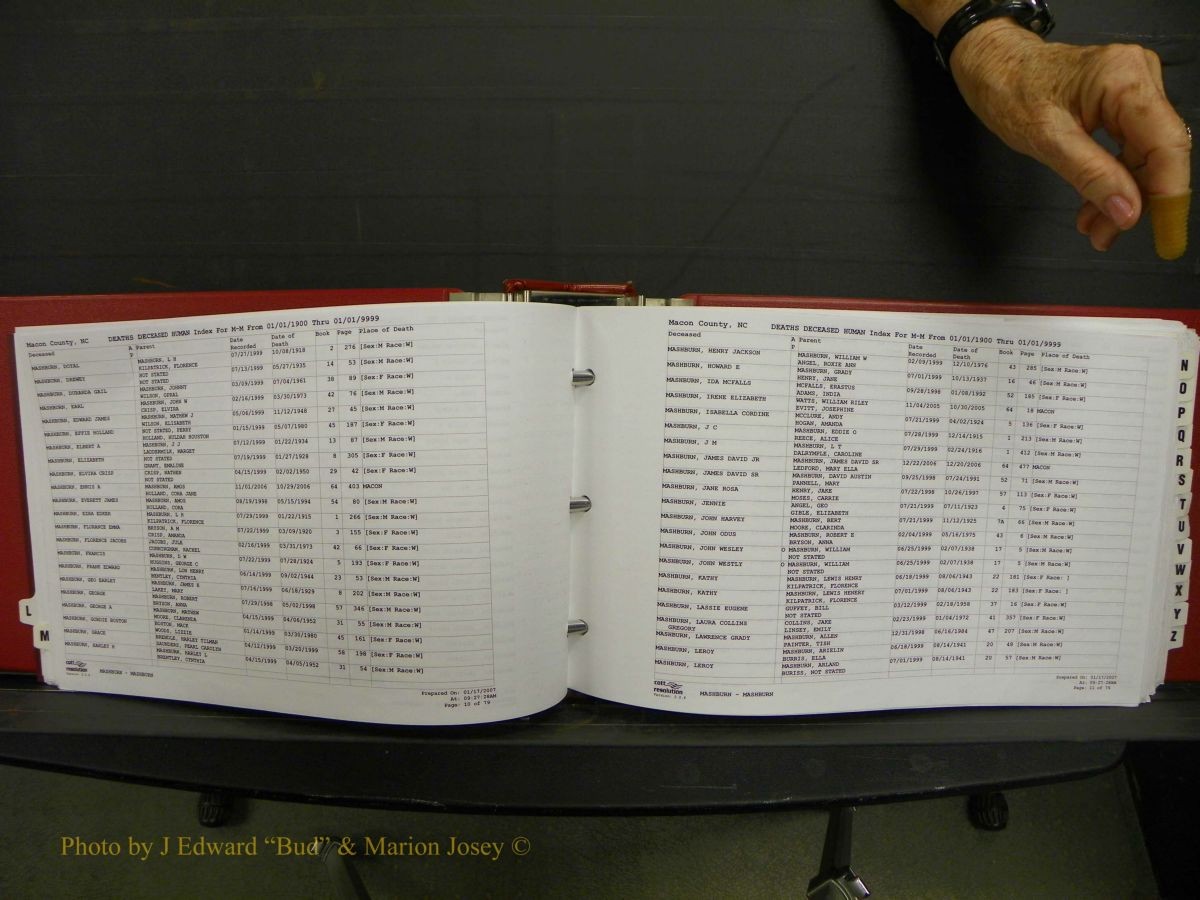 Macon County, NC DEATHS DECEASED HUMAN Index For M-M From 01/01/1900 Thru 01/01/9999
Deceased A Parent Date Recorded Date of Death Book Page Place of Death
P
MASHBURN, DOYAL MASHBURN, L H 07/27/1999 10/08/1918 2 276 [Sex:M Race:W]
KILPATRICK, FLORENCE
MASHBURN, DREWEY NOT STATED 07/13/1999 05/27/1935 14 53 [Sex:M Race:W]
NOT STATED
MASHBURN, DURANDA GAIL MASHBURN, JOHNNY 03/09/1999 07/04/1961 38 89 [Sex:F Race:W]
WILSON, OPHAL
MASHBURN, EARL MASHBURN, JOHN W 02/16/1999 03/30/1973 42 76 [Sex:M Race:W]
CRISP, ELVIRA
MASHBURN, EDWARD JAMES MASHBURN, MATHEW J 05/06/1999 11/12/1948 27 45 [Sex:M Race:W]
WILSON, ELISABETH
MASHBURN, EFFIE HOLLAND NOT STATED, PERRY 01/15/1999 05/07/1980 45 187 [Sex:F Race:W]
HOLLAND, HULDAH HOUSTON
MASHBURN, ELBERT A MASHBURN, J J 07/12/1999 01/22/1934 13 87 [Sex:M Race:W]
LADDERMILK, MARGET
MASHBURN, ELIZABETH NOT STATED 07/19/1999 01/27/1928 8 305 [Sex:F Race:W]
GRANT, EMALINE
MASHBURN, ELVIRA CRISP CRISP, MATHER 04/15/1999 02/02/1950 29 42 [Sex:F Race:W]
NOT STATED
MASHBURN, ENNIS A MASHBURN, AMOS 11/01/2006 10/29/2006 64 403 MACON
HOLLAND, CORA JANE
MASHBURN, EVERETT JAMES MASHBURN, AMOS 09/19/1998 05/15/1994 54 80 [Sex:M Race:W]
HOLLAND, CORA
MASHBURN, EZRA MASHBURN, L H 07/29/1999 01/22/1915 1 266 [Sex:M Race:W]
KILPATRICK, FLORENCE
MASHBURN, FLORANCE EMMA BRYSON, A M 07/22/1999 03/09/1920 3 155 [Sex:F Race:W]
CRISP, AMANDA
MASHBURN, FLORENCE JACOBS JACOBS, JULE 02/16/1999 03/31/1973 42 66 [Sex:F Race:W]
CUNNINGHAM, RACHEL
MASHBURN, FRANCIS MASHBURN, D W 07/22/1999 07/28/1924 5 193 [Sex:F Race:W]
HUGGINS, GEORGE C
MASHBURN, FRANK EDWARD MASHBURN, LON HENRY 06/14/1999 09/02/1944 23 53 [Sex:M Race:W]
BENTLEY, CYNTHIA
MASHBURN, GEO EARLEY MASHBURN, JAMES R 07/16/1999 06/18/1929 8 202 [Sex:M Race:W]
LAKEY, MARY
MASHBURN, GEORGE MASHBURN, ROBERT 07/29/1998 05/02/1998 57 346 [Sex:M Race:W]
BRYSON, ANNA
MASHBURN, GEORGE A MASHBURN, MATHEW 04/15/1999 04/06/1952 31 55 [Sex:M Race:W]
MOORE, CLARINDA
MASHBURN, GORDIE BOSTON BOSTON, MACK 01/14/1999 03/30/1980 45 161 [Sex:F Race:W]
WOODS, LIZZIE
MASHBURN, GRACE BREEDLE, HARLEY TILMAN 04/12/1999 03/20/1999 58 198 [Sex:F Race:W]
SAUNDERS, PEARL CAROLEN
MASHBURN, HARLEY H MASHBURN, HARLEY L 04/15/1999 04/05/1952 31 54 [Sex:M Race:W]
BRENTLEY, CYNTHIA
cott resolution
MASHBURN - MASHBURN
Prepared On: 01/17/2007
At: 09:27:28AM
Page: 10 of 79
L
M
Macon County, NC DEATHS DECEASED HUMAN Index For M-M From 01/01/1900 Thru 01/01/9999
Deceased A Parent Date Recorded Date of Death Book Page Place of Death
P
MASHBURN, HENRY JACKSON MASHBURN, WILLIAM W 02/09/1999 12/10/1976 43 285 [Sex:M Race:W]
ANGEL, ROXIE ANN
MASHBURN, HOWARD E MASHBURN, GRADY 07/01/1999 10/13/1937 16 46 [Sex:M Race:W]
HENRY, JANE
MASHBURN, IDA MCFALLS MCFALLS, ERASTUS 09/28/1998 01/08/1992 52 165 [Sex:F Race:W]
ADAMS, INDIA
MASHBURN, IRENE ELIZABETH WATTS, WILLIAM RILEY 11/04/2005 10/30/2005 64 18 MACON
EVITT, JOSEPHINE
MASHBURN, ISABELLA CORDINE MCCLURE, ANDY 07/21/1999 04/02/1924 5 136 [Sex:F Race:W]
HOGAN, AMANDA
MASHBURN, J C MASHBURN, EDDIE O 07/28/1999 12/14/1915 1 213 [Sex:M Race:W]
REECE, ALICE
MASHBURN, J M MASHBURN, L T 07/29/1999 02/24/1916 1 412 [Sex:M Race:W]
DALRYMPLE, CAROLINE
MASHBURN, JAMES DAVID JR MASHBURN, JAMES DAVID SR 12/22/2006 12/20/2006 64 477 MACON
LEDFORD, MARY ELLA
MASHBURN, JAMES DAVID SR MASHBURN, DAVID AUSTIN 09/25/1998 07/24/1991 52 71 [Sex:M Race:W]
PANNELL, MARY
MASHBURN, JANE ROSA HENRY, JAKE 07/22/1998 10/26/1997 57 113 [Sex:F Race:W]
MOSES, CARRIE
MASHBURN, JENNIE ANGEL, GEO 07/21/1999 07/11/1923 4 75 [Sex:F Race:W]
GIBLE, ELIZABETH
MASHBURN, JOHN HARVEY MASHBURN, BERT 07/21/1999 11/12/1925 7A 66 [Sex:M Race:W]
MOORE, CLARINDA
MASHBURN, JOHN ODUS MASHBURN, ROBERT E 02/04/1999 05/16/1975 43 6 [Sex:M Race:W]
BRYSON, ANNA
MASHBURN, JOHN WESLEY O MASHBURN, WILLIAM 06/25/1999 02/07/1938 17 5 [Sex:M Race:W]
NOT STATED
MASHBURN, JOHN WESTLY O MASHBURN, WILLIAM 06/25/1999 02/07/1938 17 5 [Sex:M Race:W]
NOT STATED
MASHBURN, KATHY MASHBURN, LEWIS HENRY 06/18/1999 08/06/1943 22 181 [Sex:F Race: ]
KILPATRICK, FLORENCE
MASHBURN, KATHY MASHBURN, LEWIS HENERY 07/01/1999 08/06/1943 22 183 [Sex:F Race: ]
KILPATRICK, FLORENCE
MASHBURN, LASSIE EUGENE GUFFEY, BILL 03/12/1999 02/18/1958 37 16 [Sex:F Race:W]
NOT STATED
MASHBURN, LAURA COLLINS COLLINS, JAKE 02/23/1999 01/04/1972 41 357 [Sex:F Race:W]
GREGORY LINSEY, EMILY
MASHBURN, LAWRENCE GRADY MASHBURN, ALLEN 12/31/1998 06/16/1984 47 207 [Sex:M Race:W]
PAINTER, TISH
MASHBURN, LEROY MASHBURN, ARIELIN 06/18/1999 08/14/1941 20 48 [Sex:M Race:W]
BURRIS, ELLA
MASHBURN, LEROY MASHBURN, ARLAND 07/01/1999 08/14/1941 20 57 [Sex:M Race:W]
BURISS, NOT STATED
cott resolution
MASHBURN - MASHBURN
Prepared On: 01/17/2007
At: 09:27:28AM
Page: 11 of 79
N
O
P
Q
R
S
T
U
V
W
X
Y
Z
Photo by J Edward “Bud” & Marion Josey ©